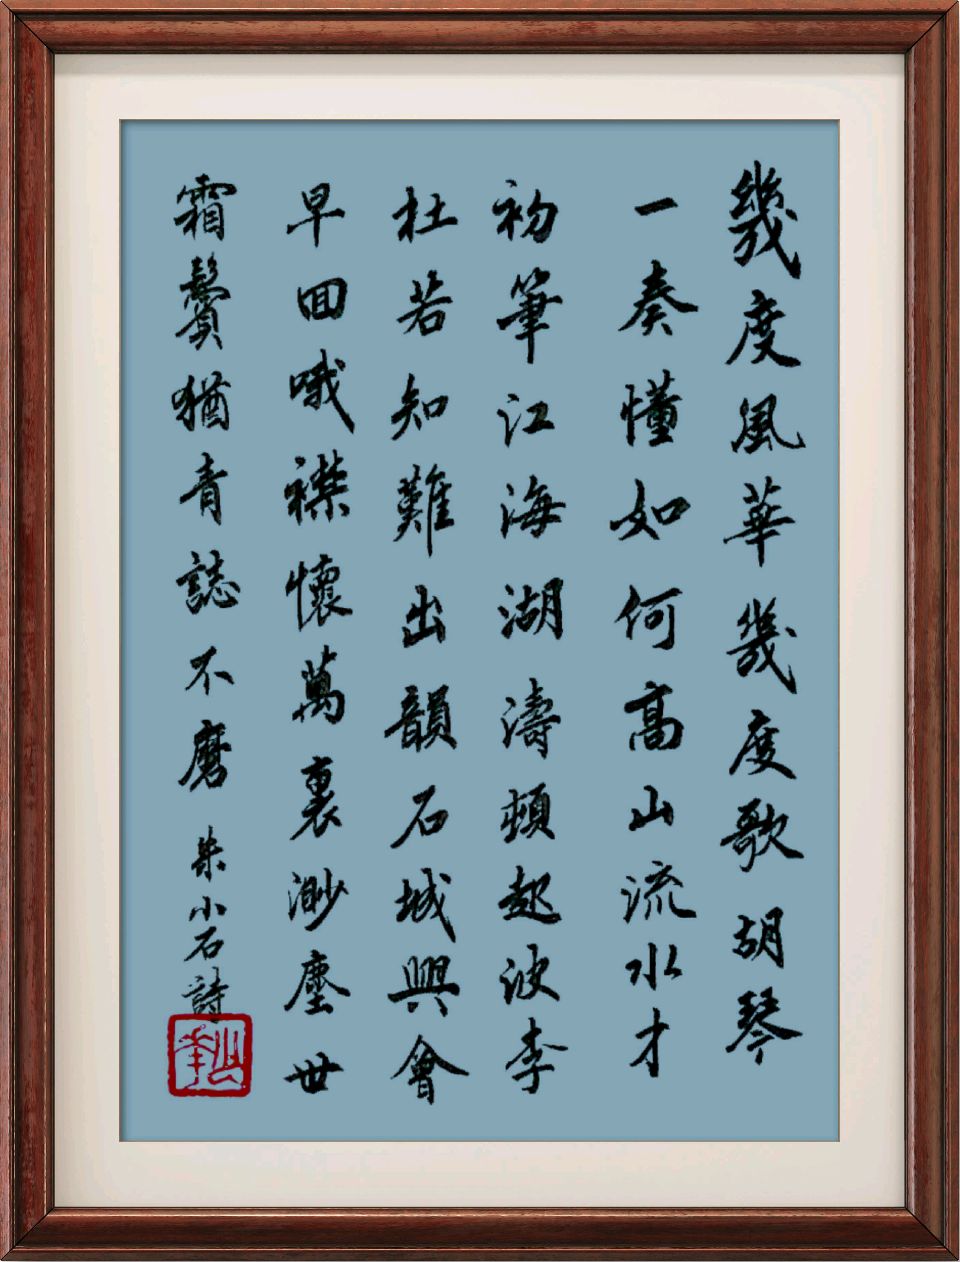 幾度風華幾度歌胡琴
一奏懂如何高山流水才
初筆江海湖濤頓起波李
杜若知難出韻石城興會
早回哦襟懷萬裏渺塵世
霜鬢猶青誌不磨
朱小石詩